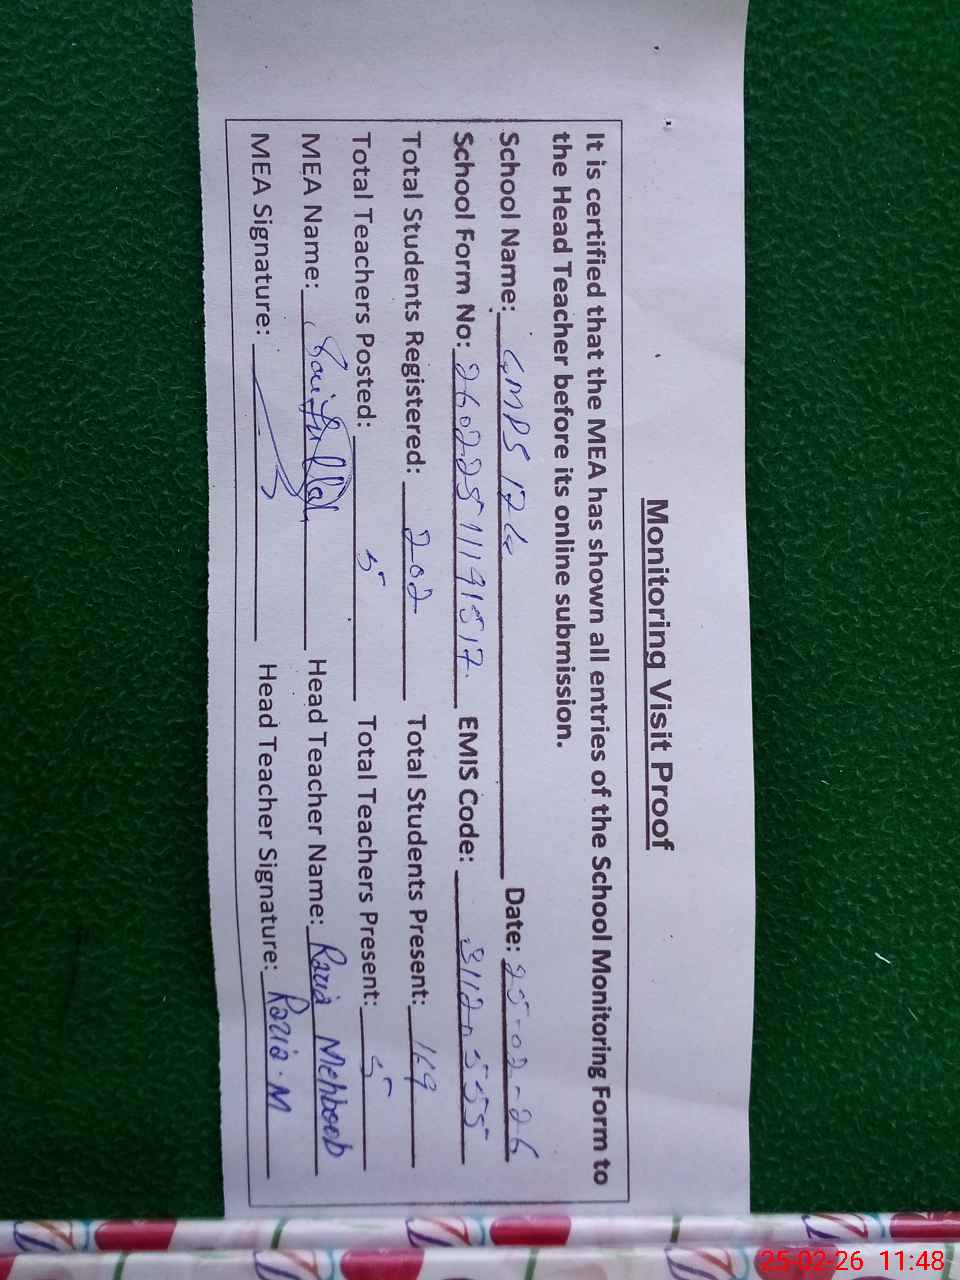 Monitoring Visit Proof
It is certified that the MEA has shown all entries of the School Monitoring Form to
the Head Teacher before its online submission.
School Name: GMPS 17 Date: 25-02-26
School Form No: EMIS Code:
Total Students Registered: 202 Total Students Present: 169
Total Teachers Posted: 5 Total Teachers Present: 5
MEA Name: Head Teacher Name: Razia Mehboob
MEA Signature: Head Teacher Signature: Razia.M
25-02-26 11:48